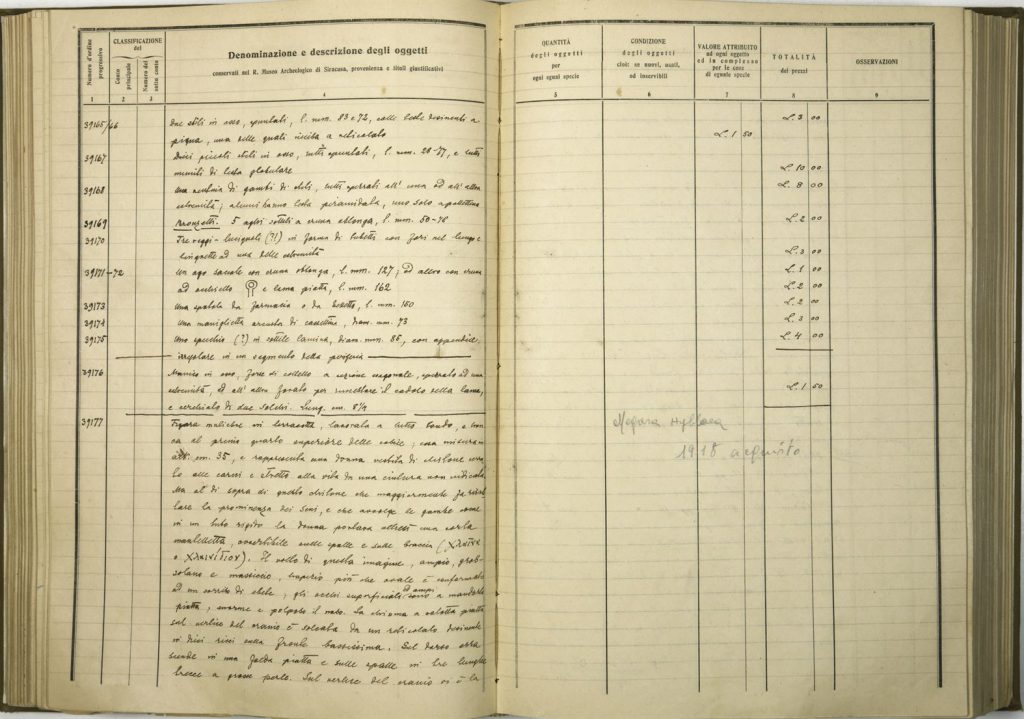 Numero d'ordine progressivo
CLASSIFICAZIONE del
Conto principale
Numero del sotto conto
Denominazione e descrizione degli oggetti
conservati nel R. Museo Archeologico di Siracusa, provenienza e titoli giustificativi
QUANTITÀ degli oggetti per ogni egual specie
CONDIZIONE degli oggetti cioè: se nuovi, usati, od inservibili
VALORE ATTRIBUITO ad ogni oggetto ed in complesso per le cose di eguale specie
TOTALITÀ dei prezzi
OSSERVAZIONI
1 2 3 4 5 6 7 8 9
39165/66 Due stili in osso, spuntati, l. mm. 83 e 72, colle teste desinenti a L. 3 00
pigna, una delle quali incisa a reticolato L. 1 50
39167 Dieci piccoli stili in osso, tutti spuntati, l. mm. 28-77, e tutti
muniti di testa globulare L. 10 00
39168 Una ventina di gambi di stili, tutti spezzati all'una od all'altra L. 8 00
estremità; alcuni hanno testa piramidata, uno solo a pallottina
39169 Bronzetti. 5 aghi sottili a cruna oblonga, l. mm. 50-78 L. 2 00
39170 Tre reggi-lucignoli (?!) in forma di tubetti con fori nel lungo e
linguette ad una delle estremità L. 3 00
39171-72 Un ago saccale con cruna oblonga, l. mm. 127; ed altro con cruna L. 1 00
ad occhiello e lama piatta, l. mm. 162 L. 2 00
39173 Una spatola da farmacia o da l. mm. 160 L. 2 00
39174 Una maniglietta arcuata di cassettina, diam. mm. 73 L. 3 00
39175 Uno specchio (?) in sottile lamina, diam. mm. 85, con appendice L. 4 00
irregolare in un segmento della periferia
39176 Manico in osso, forse di coltello a sezione esagonale, spezzato ad una
estremità, ed all'altra forato per innestare il codolo della lama, L. 1 50
e cerchiato di due solchi. Lung. cm. 8 1/2
39177 Figura muliebre in terracotta, lavorata a tutto tondo, e tronca
ca al primo quarto superiore delle cosce; essa misura in Megara Hyblaea
alt. cm. 35, e rappresenta una donna vestita di chitone 1918 acquisto
to alle carni e stretto alla vita da una cintura non indicata
Ma al di sopra di questo chitone che maggiormente fa risal
tare la prominenza dei seni, e che avvolge le gambe come
in un tubo rigido la donna portava altresì una corta
mantelletta, avvertibile sulle spalle e sulle braccia (χλαῖνα
o χλανίδιον). Il volto di questa imagine, ampio, gros
solano e massiccio, coperto più che ovale è conformato
ad un sorriso di ebete; gli occhi superficiali ed ampi sono a mandorla
piatta; enorme e polposo il naso. La chioma a calotta piatta
sul vertice del cranio è solcata da un reticolato desinente
in dieci ricci sulla fronte bassissima. Sul dorso essa
scende in una falda piatta e sulle spalle in tre lunghe
trecce a grosse perle. Sul vertice del cranio vi è la